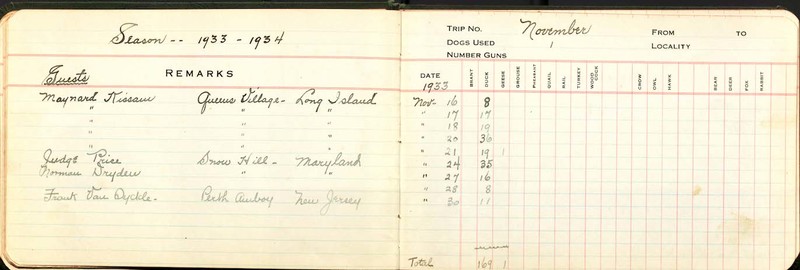 Season -- 1933 - 1934
Guests REMARKS
Maynard Nissam Queens Village - Long Island
" " "
" " "
" " "
" " "
Judge Price Snow Hill - Maryland
Norman Dryden " "
Frank Van Dyckle - Perth Amboy New Jersey
TRIP NO. November FROM TO
DOGS USED 1 LOCALITY
NUMBER GUNS
DATE BRANT DUCK GEESE GROUSE PHEASANT QUAIL RAIL TURKEY WOODCOCK CROW OWL HAWK BEAR DEER FOX RABBIT
1933
Nov- 16 8
" 17 17
" 18 19
" 20 36
" 21 19 1
" 24 35
" 27 16
" 28 8
" 30 11
Total 169 1